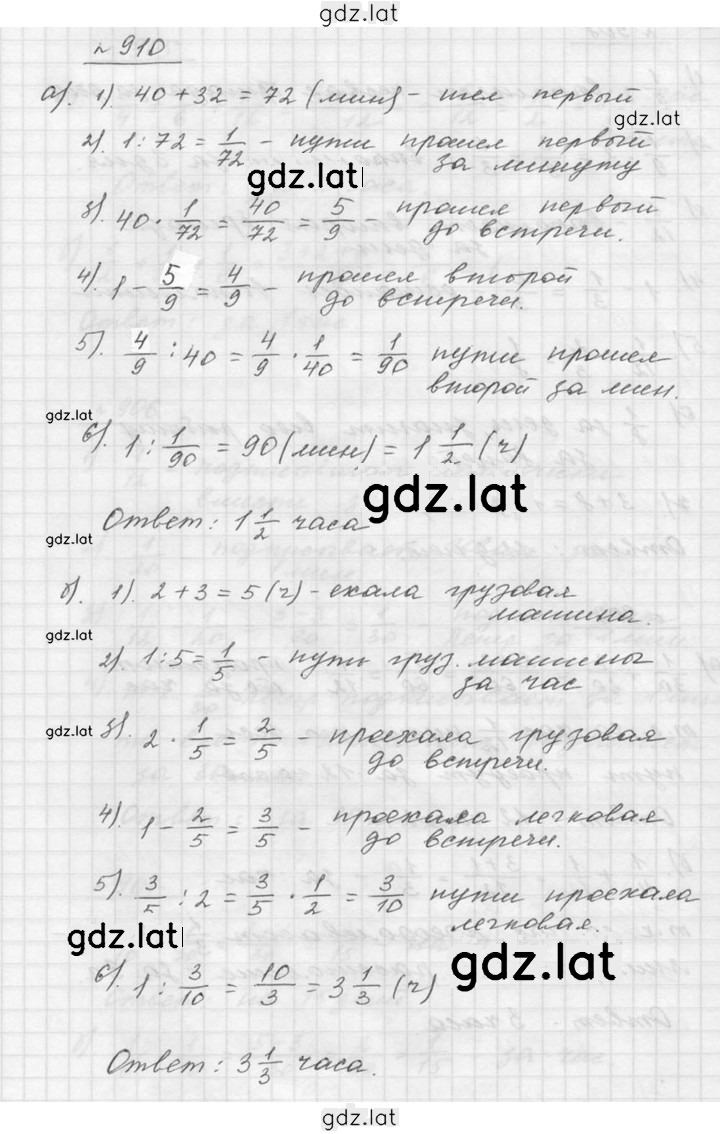 gdz.lat
№ 910
а). 1) 40 + 32 = 72 (мин) - шел первый
gdz.lat
2). 1 : 72 = 1/72 - пути прошел первый
за минуту
gdz.lat
3). 40 · 1/72 = 40/72 = 5/9 - прошел первый
до встречи.
4). 1 - 5/9 = 4/9 - прошел второй
до встречи.
5). 4/9 : 40 = 4/9 · 1/40 = 1/90 пути прошел
второй за мин.
gdz.lat
6). 1 : 1/90 = 90 (мин) = 1 1/2 (ч)
gdz.lat
Ответ: 1 1/2 часа
gdz.lat
б). 1). 2 + 3 = 5 (ч) - ехала грузовая
машина.
gdz.lat
2). 1 : 5 = 1/5 - путь груз. машины
за час
gdz.lat
3). 2 · 1/5 = 2/5 - проехала грузовая
до встречи.
4). 1 - 2/5 = 3/5 - проехала легковая
до встречи.
5). 3/5 : 2 = 3/5 · 1/2 = 3/10 пути проехала
легковая.
gdz.lat
gdz.lat
6). 1 : 3/10 = 10/3 = 3 1/3 (ч)
Ответ: 3 1/3 часа.
gdz.lat